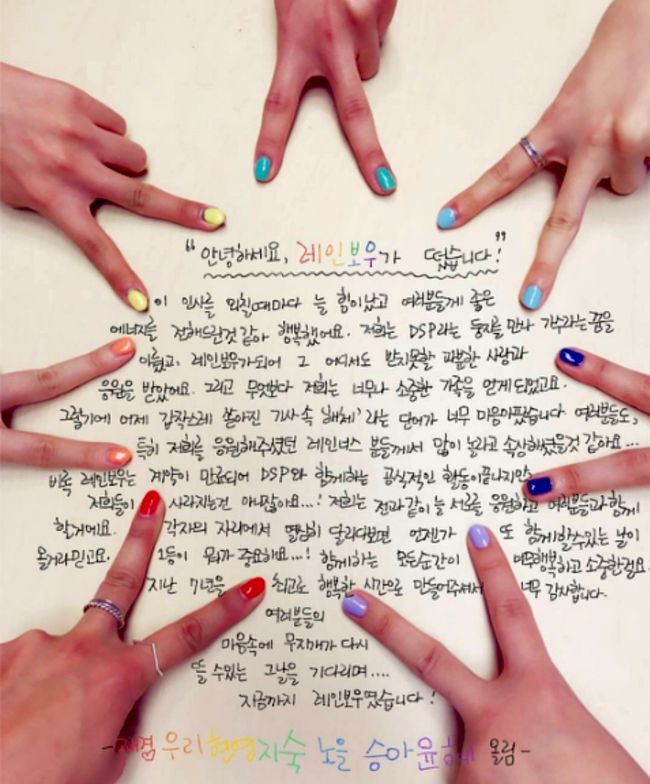 "안녕하세요, 레인보우가 떴습니다!"
이 인사를 외칠때마다 늘 힘이났고 여러분들게 좋은
에너지를 전해드린것 같아 행복했어요. 저희는 DSP라는 둥지를 만나 가수라는 꿈을
이뤘고, 레인보우가되어 그 어디서도 받지못할 과분한 사랑과
응원을 받았어요. 그리고 무엇보다 저희는 너무나 소중한 가족을 얻게되었고요.
그렇기에 어제 갑작스레 쏟아진 기사속 '해체' 라는 단어가 너무 마음아팠습니다 여러분들도,
특히 저희를 응원해주셨던 레인너스 분들께서 많이 놀라고 속상해셨을것 같아요...
비록 레인보우는 계약이 만료되어 DSP와 함께하는 공식적인 활동이끝나지만
저희들이 사라지는건 아니잖아요...! 저희는 전과같이 늘 서로를 응원하고 여러분들과 함께
할거에요. 각자의 자리에서 열심히 달리다보면 언젠가 또 함께할수있는 날이
올거라믿고요. 1등이 뭐가 중요해요...! 함께하는 모든순간이 너무행복하고 소중한걸요.
지난 7년을 최고로 행복한 시간으로 만들어주셔서 너무 감사합니다.
여러분들의
마음속에 무지개가 다시
뜰 수있는 그날을 기다리며....
지금까지 레인보우였습니다!
-재경 우리 현영 지숙 노을 승아 윤혜 올림-